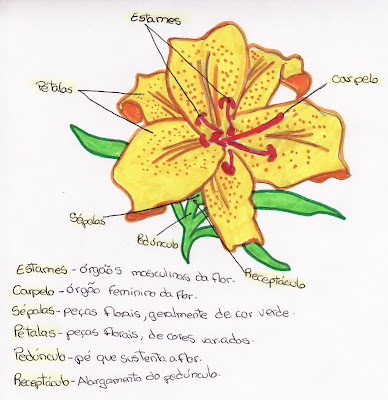 Estames
Pétalas
Carpelo
Sépalas
Pedúnculo
Receptáculo
Estames - órgãos masculinos da flor.
Carpelo - órgão feminino da flor.
Sépalas - peças florais, geralmente de cor verde.
Pétalas - peças florais, de cores variadas.
Pedúnculo - pé que sustenta a flor.
Receptáculo - Alargamento do pedúnculo.